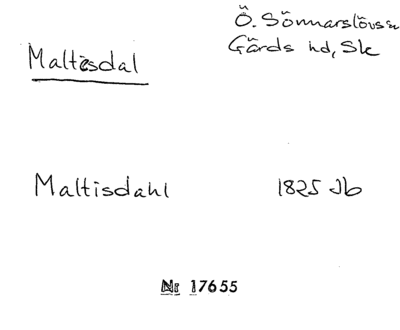 Ö. Sönnarslövs sn
Maltesdal
Gärds hd, Sk
Maltisdahl 1825 Jb
Nr 17655